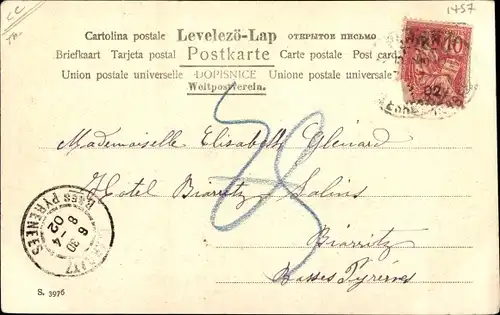 1457
Cartolina postale Levelező-Lap ОТКРЫТОЕ ПИСЬМО
Briefkaart Tarjeta postal Postkarte Carte postale Post card
Union postale universelle DOPISNICE Unione postale universale
Weltpostverein.
10
02
Mademoiselle Elisabeth Glénard
Hotel Biarritz Salins
Biarritz
Basses Pyrénées
6 30
8 - 4
02
BSSES PYRENEES
S. 3976